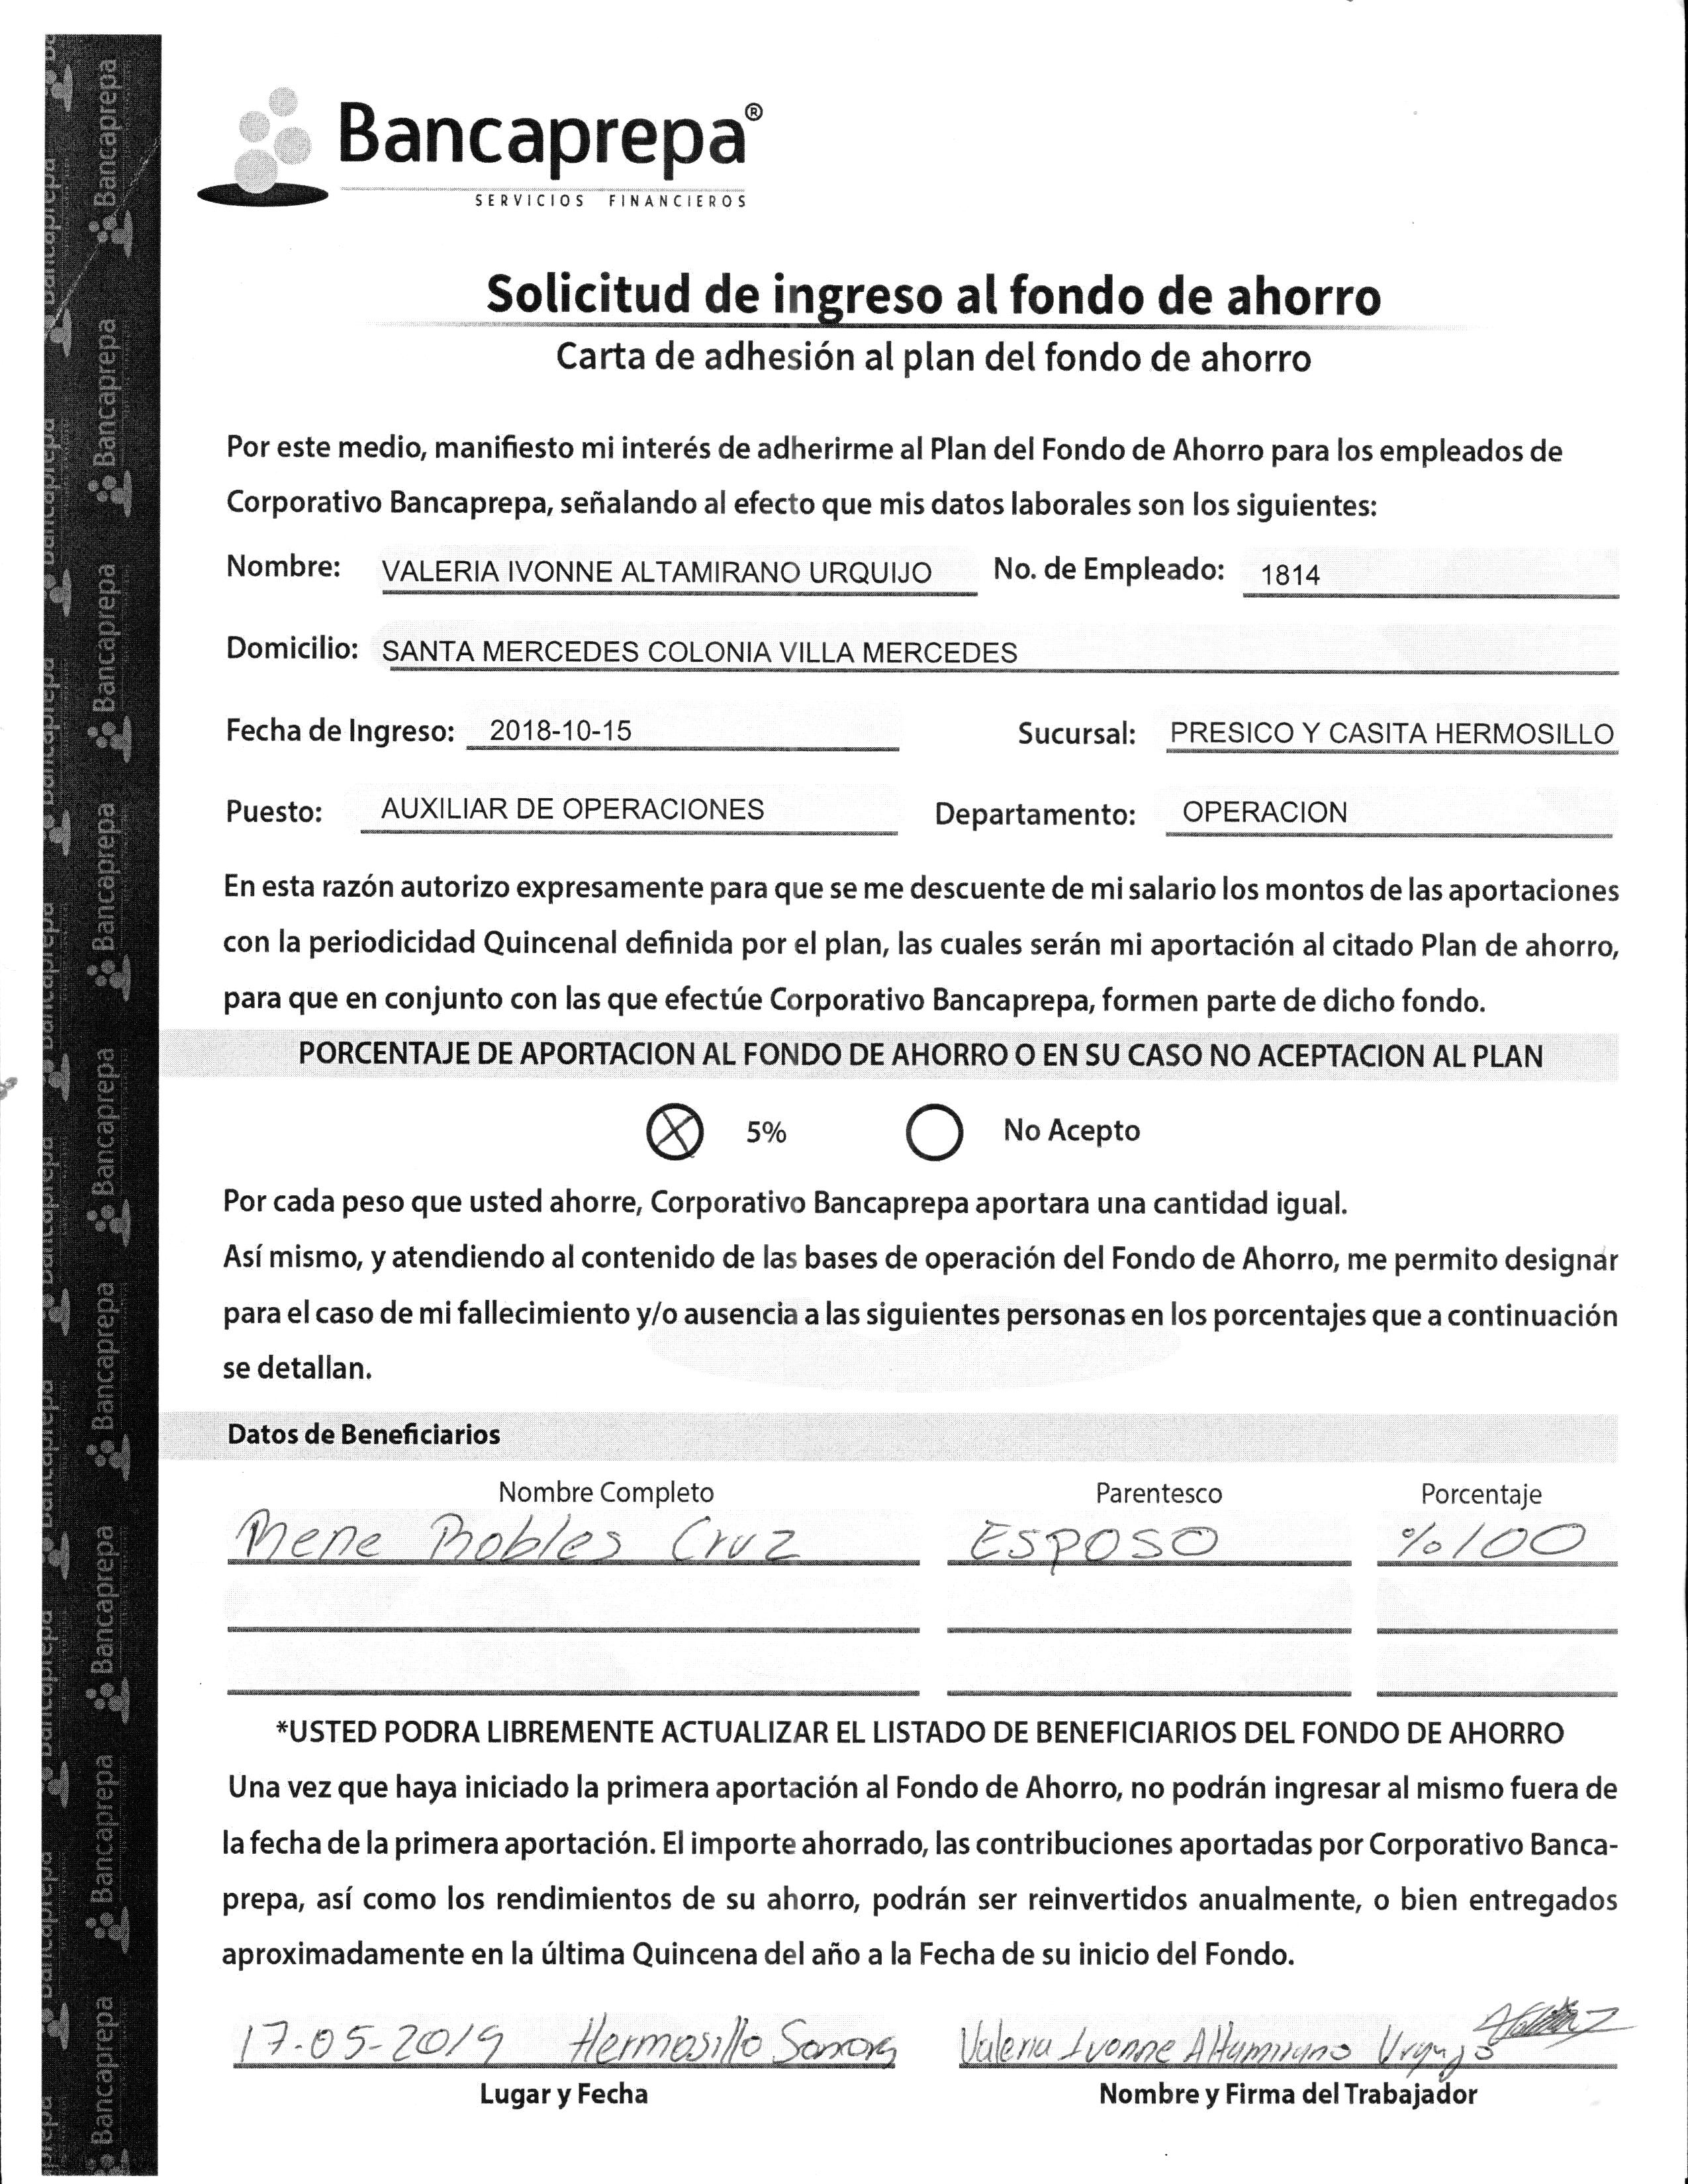 Bancaprepa®
SERVICIOS FINANCIEROS
Solicitud de ingreso al fondo de ahorro
Carta de adhesión al plan del fondo de ahorro
Por este medio, manifiesto mi interés de adherirme al Plan del Fondo de Ahorro para los empleados de
Corporativo Bancaprepa, señalando al efecto que mis datos laborales son los siguientes:
Nombre: VALERIA IVONNE ALTAMIRANO URQUIJO No. de Empleado: 1814
Domicilio: SANTA MERCEDES COLONIA VILLA MERCEDES
Fecha de Ingreso: 2018-10-15 Sucursal: PRESICO Y CASITA HERMOSILLO
Puesto: AUXILIAR DE OPERACIONES Departamento: OPERACION
En esta razón autorizo expresamente para que se me descuente de mi salario los montos de las aportaciones
con la periodicidad Quincenal definida por el plan, las cuales serán mi aportación al citado Plan de ahorro,
para que en conjunto con las que efectúe Corporativo Bancaprepa, formen parte de dicho fondo.
PORCENTAJE DE APORTACION AL FONDO DE AHORRO O EN SU CASO NO ACEPTACION AL PLAN
5% No Acepto
Por cada peso que usted ahorre, Corporativo Bancaprepa aportara una cantidad igual.
Así mismo, y atendiendo al contenido de las bases de operación del Fondo de Ahorro, me permito designar
para el caso de mi fallecimiento y/o ausencia a las siguientes personas en los porcentajes que a continuación
se detallan.
Datos de Beneficiarios
Nombre Completo Parentesco Porcentaje
Rene Robles Cruz ESPOSO %100
*USTED PODRA LIBREMENTE ACTUALIZAR EL LISTADO DE BENEFICIARIOS DEL FONDO DE AHORRO
Una vez que haya iniciado la primera aportación al Fondo de Ahorro, no podrán ingresar al mismo fuera de
la fecha de la primera aportación. El importe ahorrado, las contribuciones aportadas por Corporativo Banca-
prepa, así como los rendimientos de su ahorro, podrán ser reinvertidos anualmente, o bien entregados
aproximadamente en la última Quincena del año a la Fecha de su inicio del Fondo.
17-05-2019 Hermosillo Sonora Valeria Ivonne Altamirano Urquijo
Lugar y Fecha Nombre y Firma del Trabajador